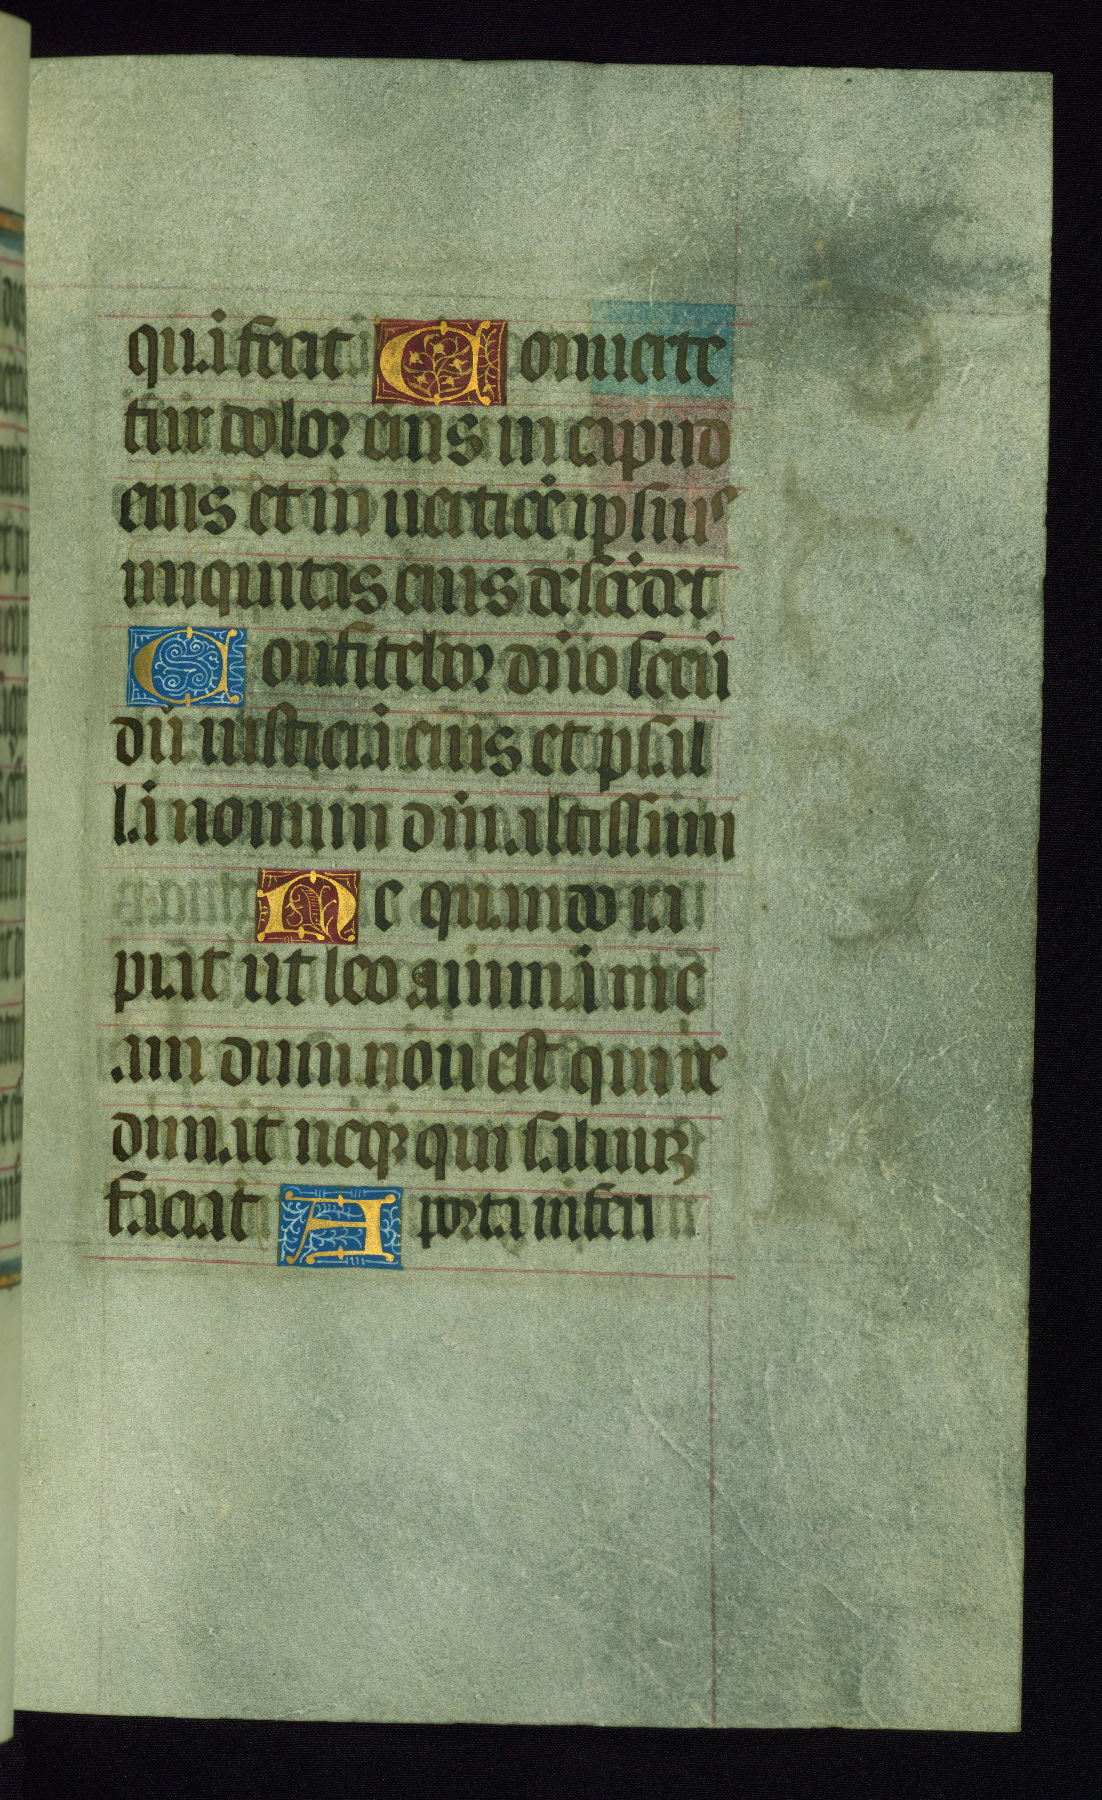 quā fecit Conuerte
tur dolor eius in capud
eius et in uerticē ipsius
iniquitas eius descēdet
Confitebor dn̄o secū
dū iusticiā eius et psal
lā nomini dn̄i altissimi
Ne quando ra
piat ut leo animā me
am dum non est qui re
dimat neqȝ qui saluūȝ
faciat A porta inferi